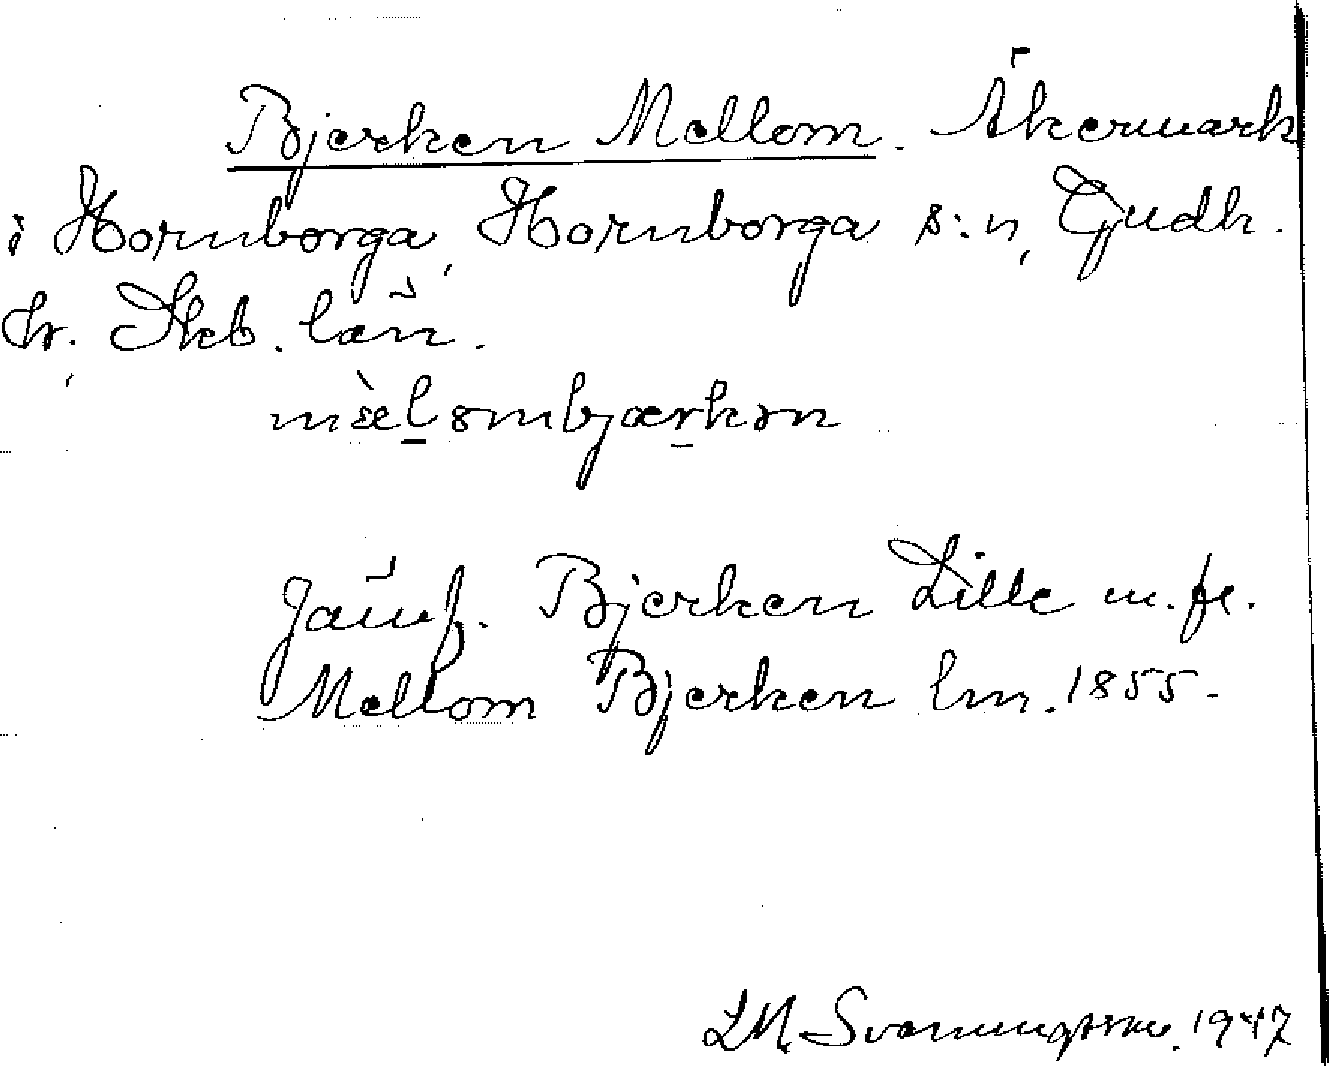 Bjerken Mellom. Åkermark
i Hornborga, Hornborga s:n, Gudh.
hr. Skb. län.
mæ̀l̲ombjær̲kən
Jämf. Bjerken Lille m. fl.
Mellom Bjerken lm. 1855.
1947